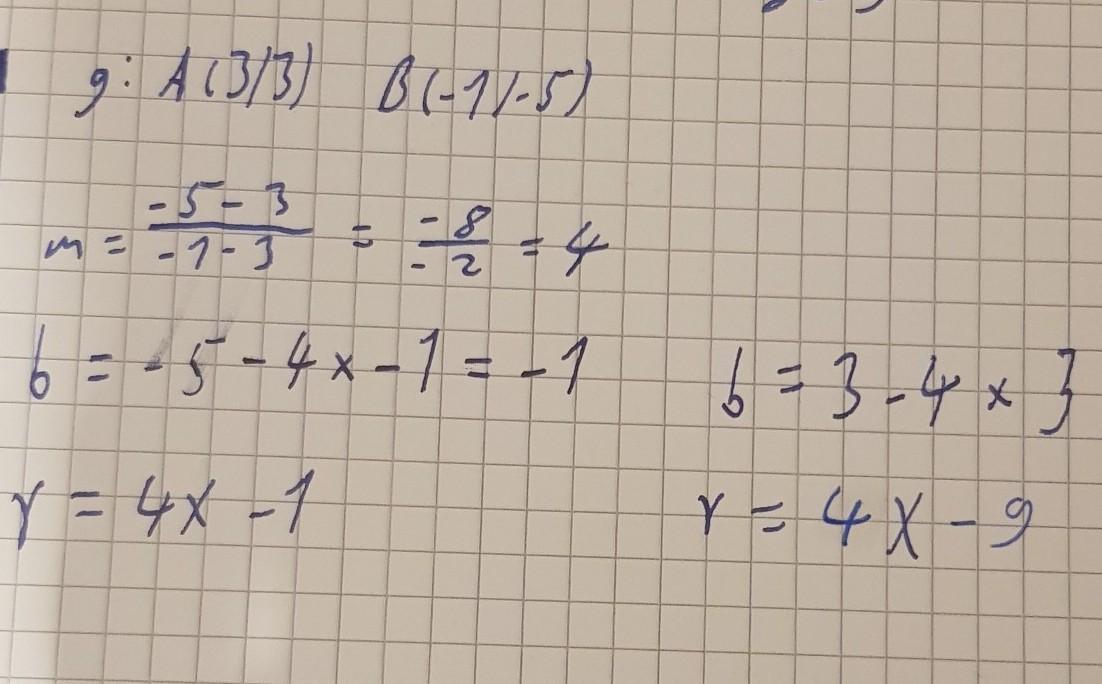 g: A(3/3) B(-1/-5)
m = -5-3 / -1-3 = -8 / -2 = 4
b = -5 - 4 x -1 = -1 b = 3 - 4 x 3
y = 4x - 1 y = 4x - 9